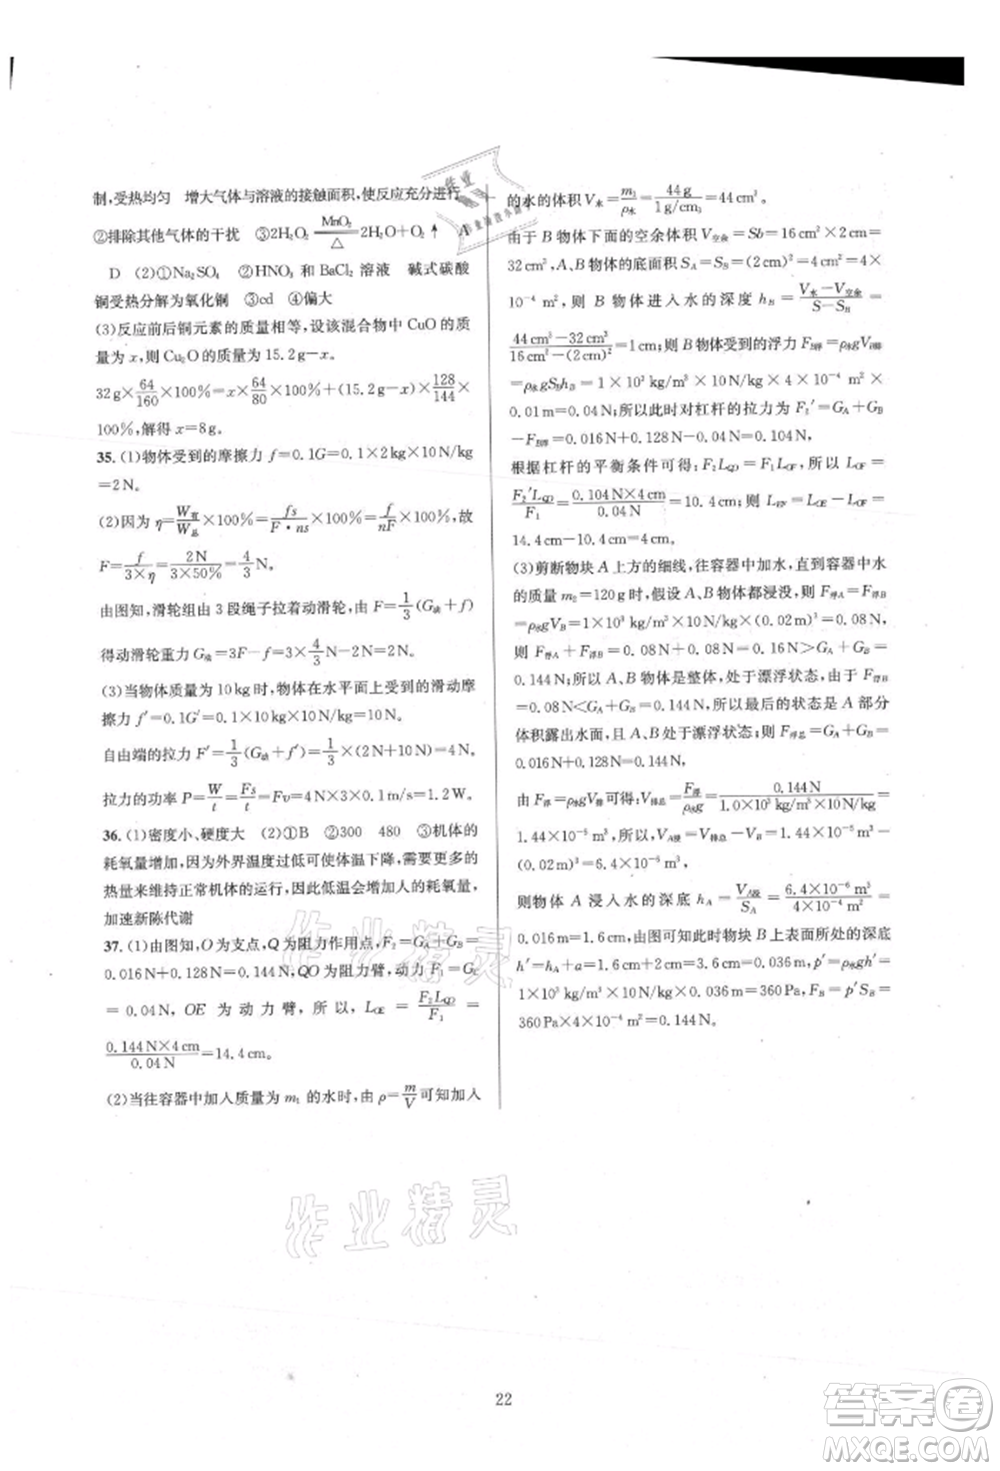 制,受热均匀　增大气体与溶液的接触面积,使反应充分进行
②排除其他气体的干扰　③2H₂O₂ =MnO₂/△= 2H₂O+O₂↑　A
D　(2)①Na₂SO₄　②HNO₃ 和 BaCl₂ 溶液　碱式碳酸
铜受热分解为氧化铜　③cd　④偏大
(3)反应前后铜元素的质量相等,设该混合物中 CuO 的质
量为 x,则 Cu₂O 的质量为 15.2g−x,
32g×64/160×100%=x×64/80×100%+(15.2g−x)×128/144×
100%,解得 x=8g。
35.(1)物体受到的摩擦力 f=0.1G=0.1×2kg×10N/kg
=2N。
(2)因为 η=W有/W总×100%=fs/(F·ns)×100%=f/(nF)×100%,故
F=f/(3×η)=2N/(3×50%)=4/3 N
由图知,滑轮组由 3 段绳子拉着动滑轮,由 F=1/3(G动+f)
得动滑轮重力 G动=3F−f=3×4/3 N−2N=2N。
(3)当物体质量为10kg时,物体在水平面上受到的滑动摩
擦力 f′=0.1G=0.1×10kg×10N/kg=10N。
自由端的拉力 F′=1/3(G动+f′)=1/3×(2N+10N)=4N,
拉力的功率 P=W/t=Fs/t=Fv=4N×3×0.1m/s=1.2W。
36.(1)密度小、硬度大　(2)①B　②300　480　③机体的
耗氧量增加,因为外界温度过低可使体温下降,需要更多的
热量来维持正常机体的运行,因此低温会增加人的耗氧量,
加速新陈代谢
37.(1)由图知,O为支点,Q为阻力作用点,F₂=G_A+G_B=
0.016N+0.128N=0.144N,QO为阻力臂,动力 F₁=G_C
=0.04N,OE 为动力臂,所以,L_OE=F₂L_QO/F₁=
0.144N×4cm/0.04N=14.4cm。
(2)当往容器中加入质量为 m₁ 的水时,由 ρ=m/V可知加入
的水的体积 V水=m₁/ρ水=44g/(1g/cm³)=44cm³。
由于 B 物体下面的空余体积 V空余=Sb=16cm²×2cm=
32cm³,A、B物体的底面积 S_A=S_B=(2cm)²=4cm²=4×
10⁻⁴m²,则 B 物体进入水的深度 h_B=(V水−V空余)/(S−S_B)=
(44cm³−32cm³)/(16cm²−(2cm)²)=1cm;则 B 物体受到的浮力 F_B浮=ρ水gV排=
ρ水gS_Bh_B=1×10³kg/m³×10N/kg×4×10⁻⁴m²×
0.01m=0.04N;所以此时对杠杆的拉力为 F₂′=G_A+G_B
−F_B浮=0.016N+0.128N−0.04N=0.104N,
根据杠杆的平衡条件可得:F₂L_QO=F₁L_OF,所以 L_OF=
F₂′L_QO/F₁=0.104N×4cm/0.04N=10.4cm,所以 L_EF=L_OE−L_OF=
14.4cm−10.4cm=4cm。
(3)剪断物块 A 上方的细线,往容器中加水,直到容器中水
的质量 m₂=120g 时,假设 A、B 物体都浸没,则 F浮A=F浮B
=ρ水gV_B=1×10³kg/m³×10N/kg×(0.02m)³=0.08N,
则 F浮A+F浮B=0.08N+0.08N=0.16N>G_A+G_B=
0.144N;所以 A、B 物体是整体,处于漂浮状态,由于 F浮B=
0.08N<G_A+G_B=0.144N,则最后的状态是 A 部分
体积露出水面,且 A、B 处于漂浮状态;则 F浮总=G_A+G_B=
0.016N+0.128N=0.144N,
由 F浮=ρ水gV排可得:V排总=F浮/(ρ水g)=0.144N/(1.0×10³kg/m³×10N/kg)=
1.44×10⁻⁵m³,所以,V_A浸=V排总−V_B=1.44×10⁻⁵m³−
(0.02m)³=6.4×10⁻⁶m³,
则物体 A 浸入水的深底 h_A=V_A浸/S_A=6.4×10⁻⁶m³/(4×10⁻⁴m²)=
0.016m=1.6cm,由图可知此时物块 B 上表面所处的深底
h′=h_A+a=1.6cm+2cm=3.6cm=0.036m,p′=ρ水gh′=
1×10³kg/m³×10N/kg×0.036m=360Pa,F_B=p′S_B=
360Pa×4×10⁻⁴m²=0.144N。
22
作业精灵
作业精灵
答案圈
MXQE.COM